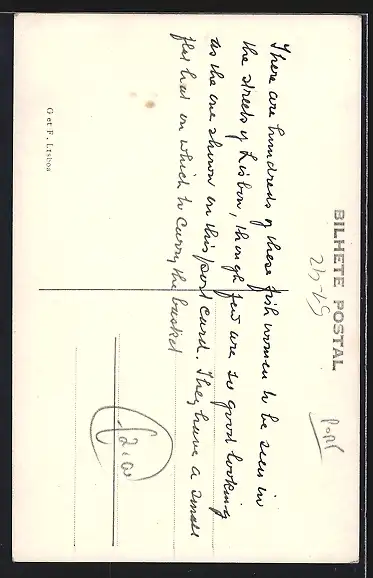 BILHETE POSTAL
There are hundreds of these fish women to be seen in
the streets of Lisbon, though few are so good looking
as the one shown on this post card. They have a small
flat hat on which to carry the basket
G et F. Lisboa
Port